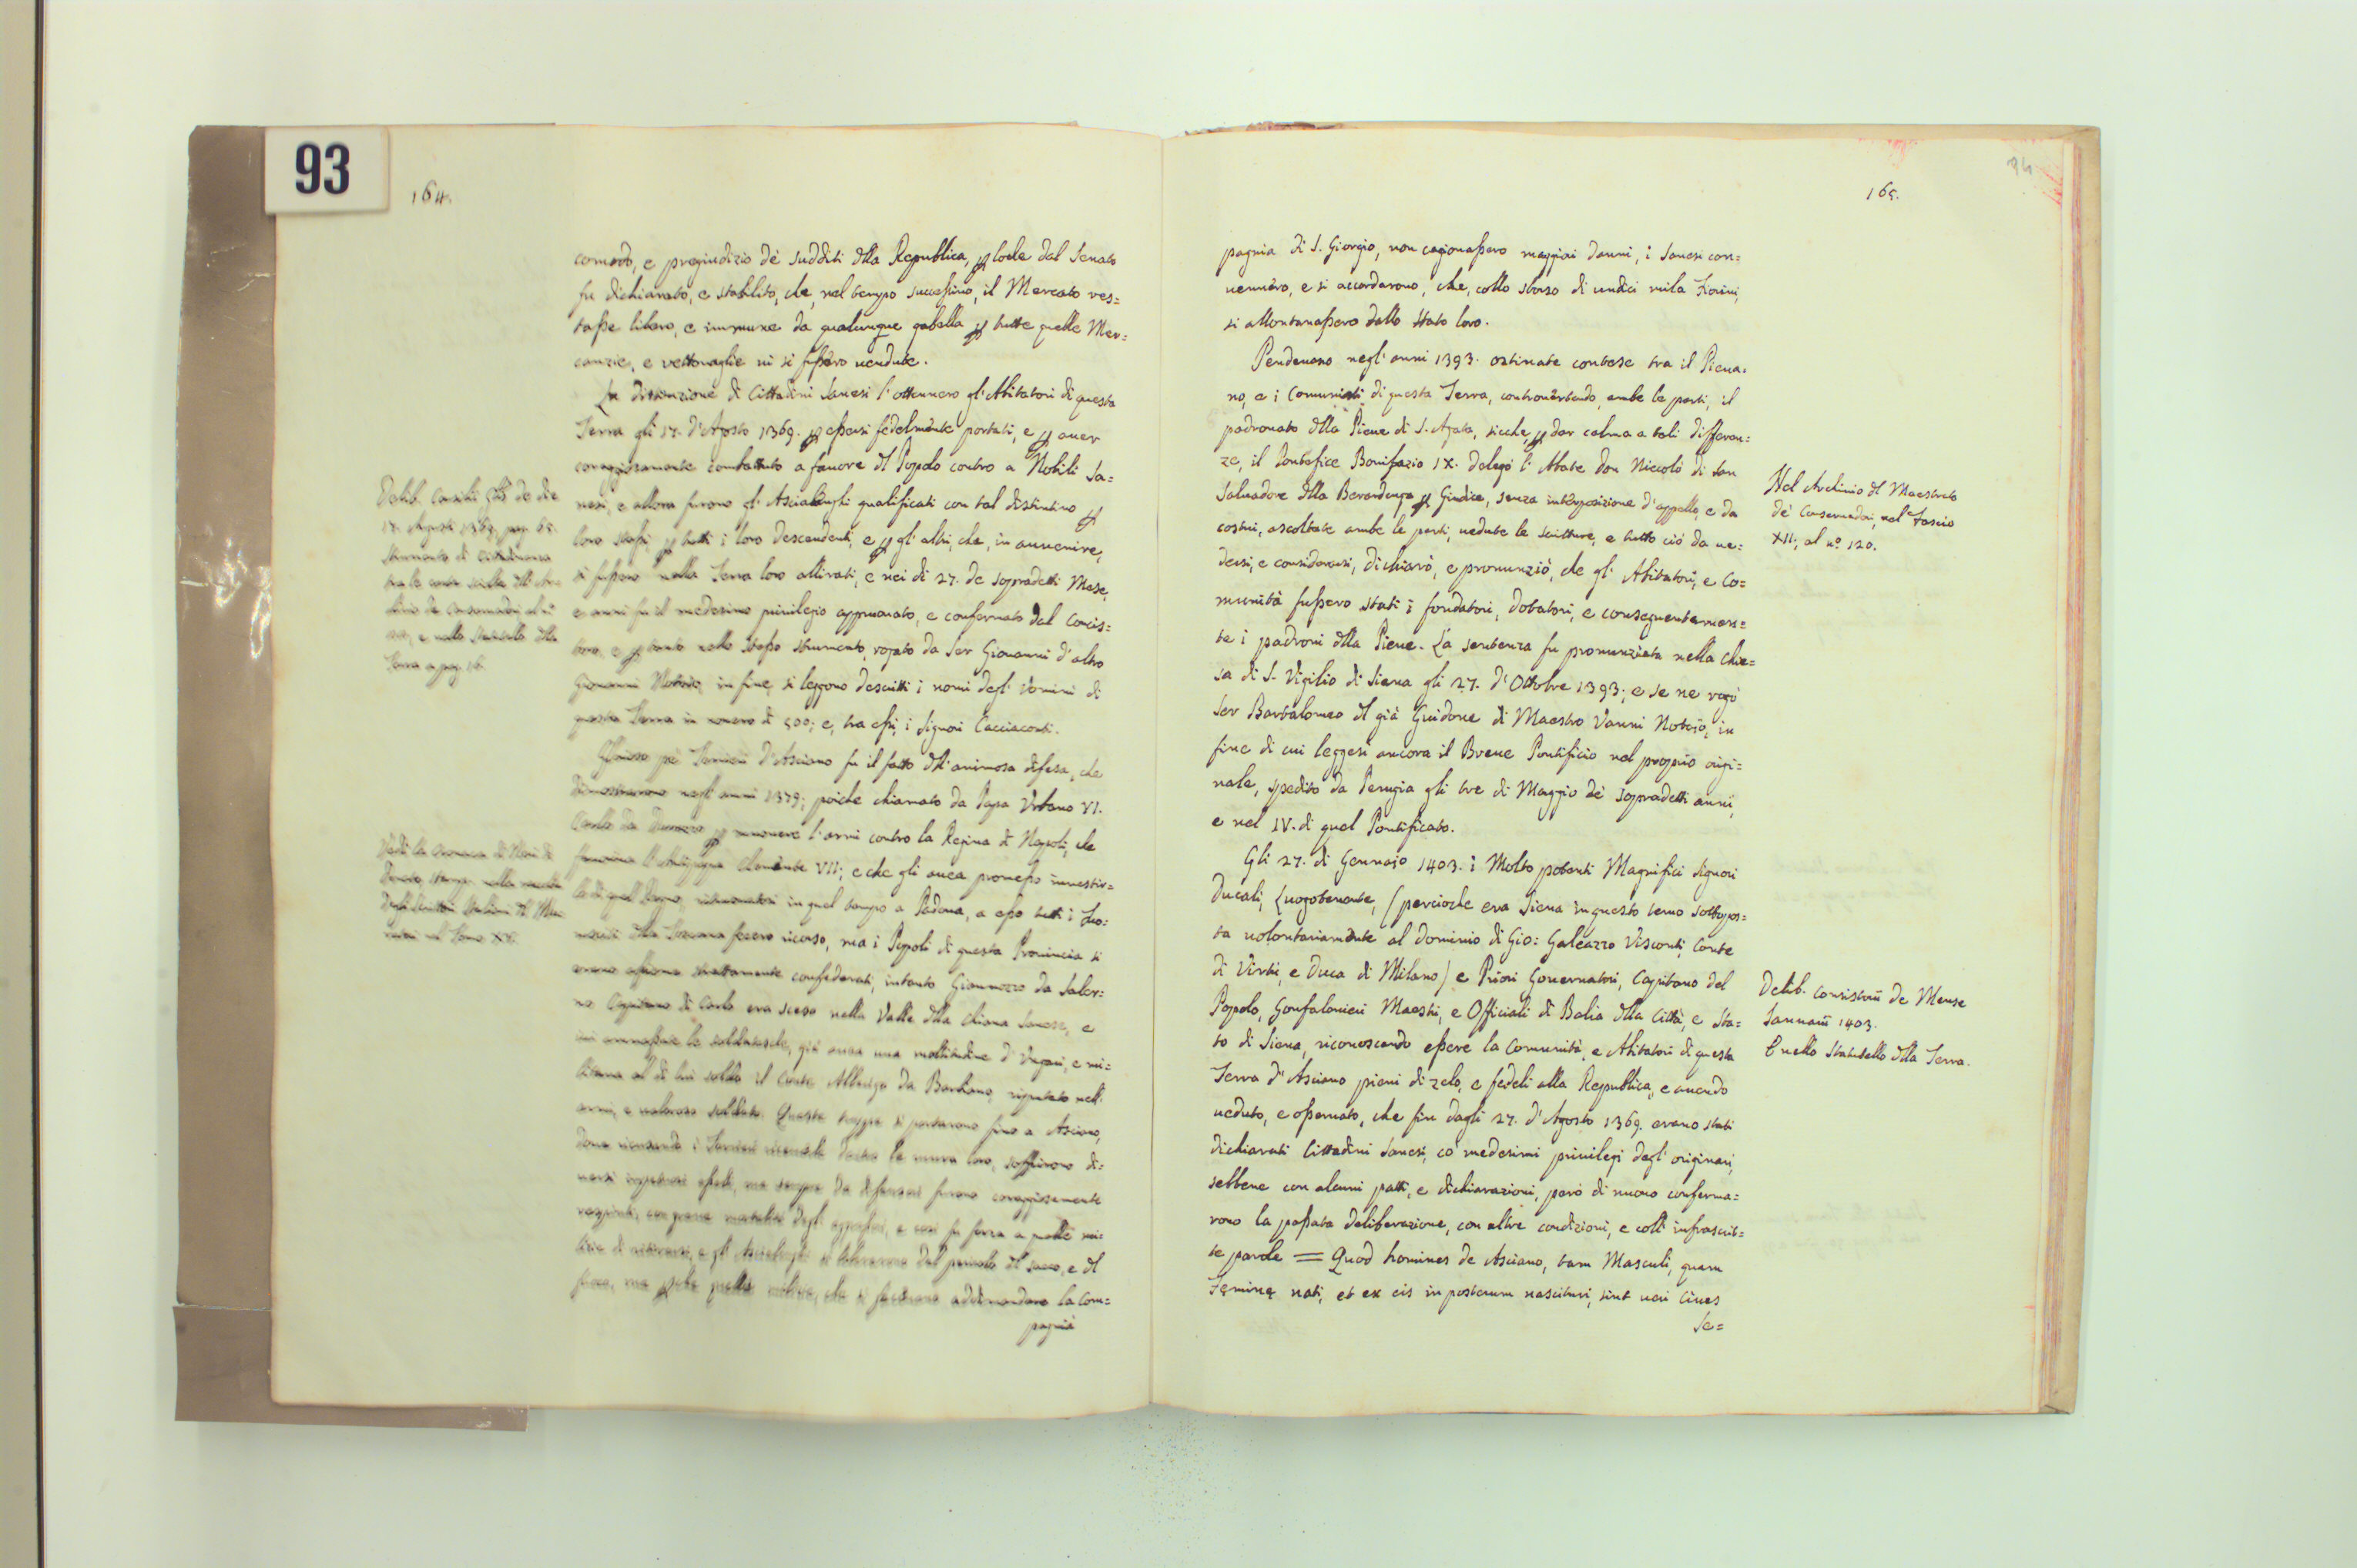 93
164.
comodo, e pregiudizio de' sudditi dlla Republica, p lode dal Senato
fu dichiarato, e stabilito, che, nel tempo succeßiuo, il Mercato res=
taße libero, e immune da qualunque gabella p tutte quelle Mer=
canzie, e vettouaglie iui si fußero uendute.
La distinzione di Cittadini Sanesi l'ottennero gl'Abitatori di questa
Terra gli 17. d'Agosto 1369. p eßersi fedelmente portati, e p auer
coraggiosamente combattuto a fauore dl Popolo contro a Nobili Sa=
nesi, e allora furono gl'Ascialenghi qualificati con tal distintiuo p
loro steßi, p tutti i loro Descendenti, e p gl'altri, che, in auuenire,
si fußero nella Terra loro allirati, e nei di 27. de sopradetti Mese,
e anni fu il medesimo priuilegio approuato, e confermato dal Concis=
toro, e p tanto nello steßo strumento, rogato da Ser Giouanni d'altro
Giouanni Notaio, in fine, si leggono descritti i nomi degl'Uomini di
questa Terra in numero di 500; e, tra eßi, i Signori Cacciaconti.
Delib. Concilii de die
17. Augusti 1369. pag. 65.
Strumento di Cittadinanza
Terra a pag. 16.
Glorioso pe' Terrieri d'Asciano fu il fatto dll'animosa difesa, che
dimostrarono negl'anni 1379; poiche chiamato da Papa Urbano VI.
Carlo da Durazzo p muouere l'armi contro la Regina di Napoli, che
fauoriua l'Antipapa Clemente VII; e che gli auea promeßo inuestir=
in quel tempo a Padoua, a eßo tutti i Fuo=
rusciti dlla Toscana fecero ricorso, ma i Popoli di questa Prouincia si
erano aßieme strettamente confederati, intanto Giannozzo da Saler=
no Capitano di Carlo era sceso nella Valle dlla Chiana Sanese, e
iui ammaßate le soldatesche, già auea una moltitudine d'Ungari, e mi=
litaua al di lui soldo il Conte Alberigo da Barbiano, reputato nell'
armi, e ualoroso soldato. Queste truppe si portarono fino a Asciano,
doue ricusando i Terrieri riceuerle dentro le mura loro, soffrirono di=
uersi impetuosi aßalti, ma sempre da difensori furono coraggiosamente
respinti, con graue mortalità degl'aggreßori, e così fu forza a quelle mi=
lizie di ritirarsi, e gl'Ascialenghi si liberarono dal pericolo dl sacco, e dl
fuoco, ma p che quelle milizie, che si faceuano addimandare la Com=
pagnia
Vedi la Cronaca di Neri di
Donato, stamp. nella raccolta
degli Scrittori Italiani dl Mura
tori nel Tomo XV.
165.
94
pagnia di S. Giorgio, non cagionaßero maggiori danni, i Sanesi con=
uennero, e si accordarono, che, collo sborso di undici mila Fiorini,
si allontanaßero dallo Stato loro.
Pendeuano negl'anni 1393. ostinate contese tra il Pieua=
no, e i Comunisti di questa Terra, controuertendo, ambe le parti, il
padronato dlla Pieue di S. Agata, sicche, p dar calma a tali differen=
ze, il Pontefice Bonifazio IX. delegò l'Abate don Niccolò di San
Saluadore dlla Berardenga p Giudice, senza interposizione d'appello, e da
costui, ascoltate ambe le parti, uedute le scritture, e tutto ciò da ue=
dersi, e considerarsi, dichiarò, e pronunziò, che gl'Abitatori, e Co=
munità fußero stati i fondatori, dotatori, e conseguentemen=
te i padroni dlla Pieue. La sentenza fu pronunziata nella Chie=
sa di S. Vigilio di Siena gli 27. d'Ottobre 1393; e se ne rogò
Ser Bartalomeo dl già Guidone di Maestro Vanni Notaio, in
fine di cui leggesi ancora il Breue Pontificio nel proprio origi=
nale, spedito da Perugia gli tre di Maggio de' sopradetti anni,
e nel IV. di quel Pontificato.
Nel Archiuio dl Maestrato
de' Conseruadori, nel Fascio
XII; al n.º 120.
Gli 27. di Gennaio 1403. i Molto potenti Magnifici Signori
Ducali, Luogotenente, (percioche era Siena in questo temo sottopos=
ta uolontariamente al dominio di Gio: Galeazzo Visconti, Conte
di Virtù, e Duca di Milano) e Priori Gouernatori, Capitano del
Popolo, Gonfalonieri Maestri, e Officiali di Balia dlla Città, e Sta=
to di Siena, riconoscendo eßere la Comunità, e Abitatori di questa
Terra d'Asciano pieni di zelo, e fedeli alla Republica, e auendo
ueduto, e oßeruato, che fin dagli 27. d'Agosto 1369. erano stati
dichiarati Cittadini Sanesi, co' medesimi priuilegi degl'originari,
sebbene con alcuni patti, e dichiarazioni, però di nuouo conferma=
rono la paßata deliberazione, con altre condizioni, e coll'infrascrit=
te parole = Quod homines de Asciano, tam Masculi, quam
Feminę nati, et ex eis in posterum nascituri, sint ueri Ciues
Se=
Delib. Consistorii de Mense
Januarii 1403.
E nello Statutello dlla Terra.